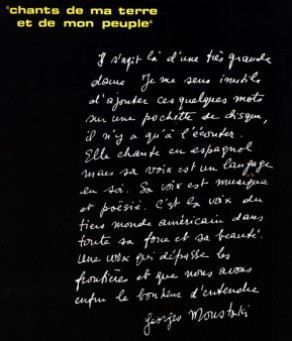 "chants de ma terre
et de mon peuple"
Il s'agit là d'une très grande
dame. Je me sens inutile
d'ajouter ces quelques mots
sur une pochette de disque,
il n'y a qu'à l'écouter.
Elle chante en espagnol
mais sa voix est un langage
en soi. Sa voix est musique
et poésie. C'est la voix du
tiers monde américain dans
toute sa force et sa beauté.
Une voix qui dépasse les
frontières et que nous avons
enfin le bonheur d'entendre
Georges Moustaki